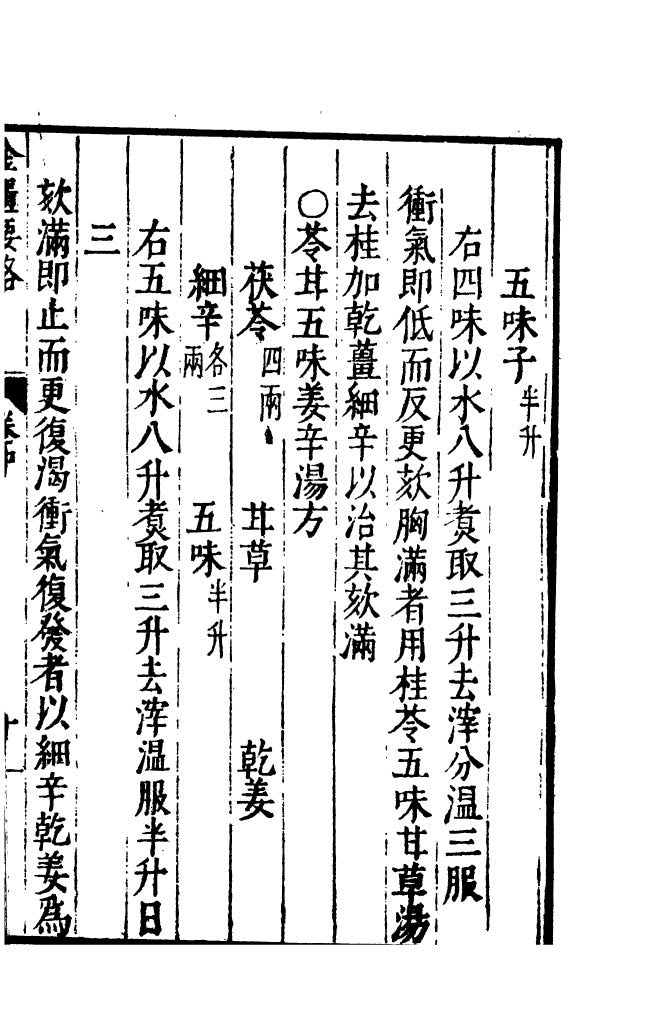 五味子半升
右四味以水八升煑取三升去滓分温三服
衝氣即低而反更欬胸滿者用桂苓五味甘草湯
去桂加乾薑細辛以治其欬滿
○苓甘五味姜辛湯方
茯苓四兩　甘草　乾姜
細辛各三兩　五味半升
右五味以水八升煑取三升去滓温服半升日
三
欬滿即止而更復渴衝氣復發者以細辛乾姜為
金匱要略　卷中　十一